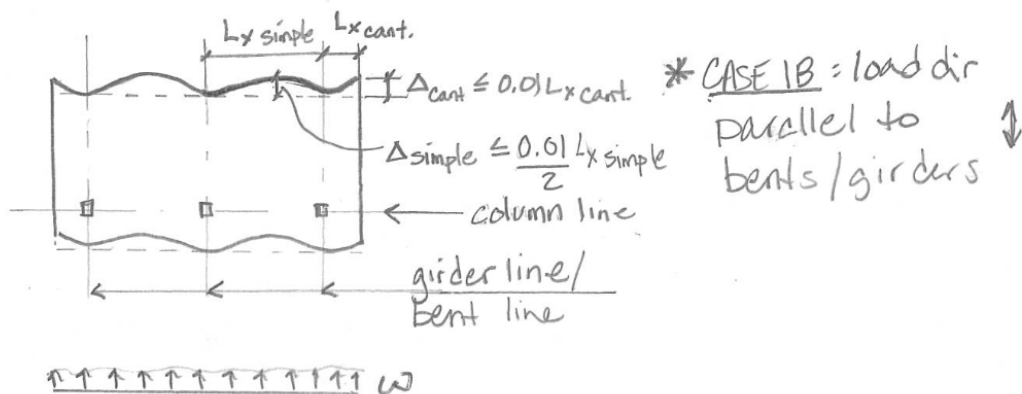 Lx simple
Lx cant.
Δcant ≤ 0.01 Lx cant.
Δsimple ≤ 0.01/2 Lx simple
column line
girder line/
bent line
ω
* CASE 1B = load dir
parallel to
bents/girders